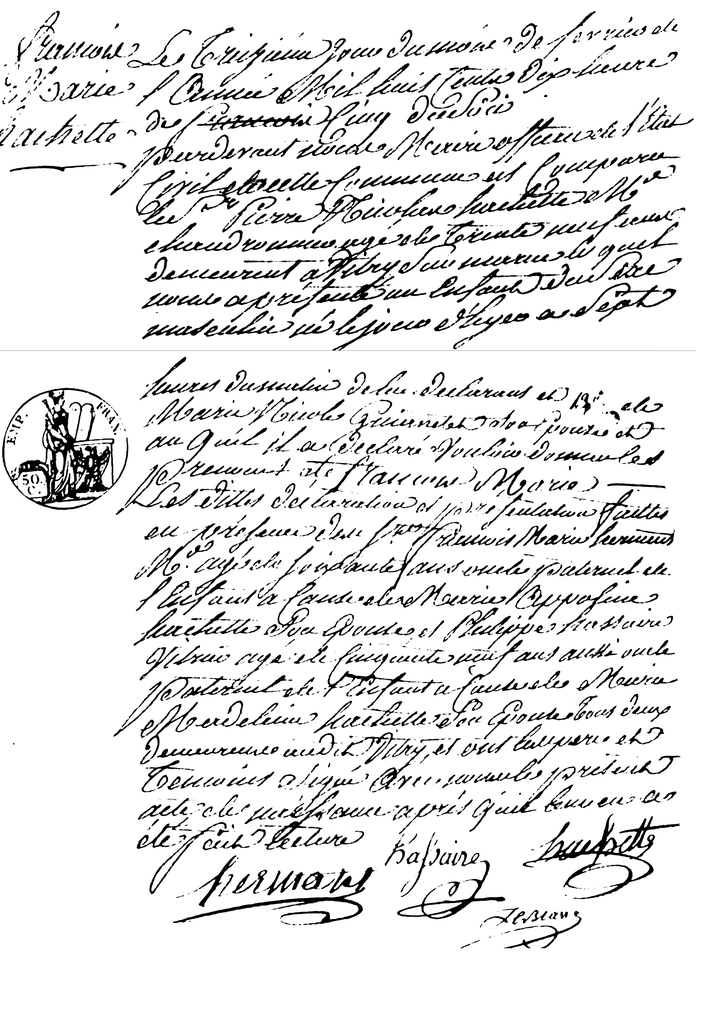 François
Marie
hachette
Le Treizieme Jour du mois de fevrier de
l'Année Mil huit Cents dix heure
de Cinq du Soir
pardevant nous Maire officier de l'Etat
Civil de cette Commune est Comparu
le Sr Pierre Nicolas hachette Md
chaudronnier agé de Trente neuf ans
demeurant a Vitry Sur marne le quel
nous a présenté un Enfant du Sexe
masculin né le jour d'hyer a Sept
heures du matin de lui declarant et de
Marie Nicole Son Epouse et
au quel il a declaré vouloir donner les
prenoms de François Marie
Les dittes declaration et présentation faittes
en presence des Srs François Marie hermant
Md agé de soixante ans oncle paternel de
l'Enfant a Cause de Marie Appoline
hachette Son Epouse et Philippe hassaire
Vitrier agé de Cinquante neuf ans aussi oncle
paternel de l'Enfant a Cause de Marie
Madeleine hachette Son Epouse tous deux
demeurants audit Vitry, et ont les pere et
temoins signé avec nous le présent
acte de naissance après qu'il leur en a
été fait Lecture
hassaire
hachette
hermant
LeBlanc
EMP. FRAN.
50.
C.